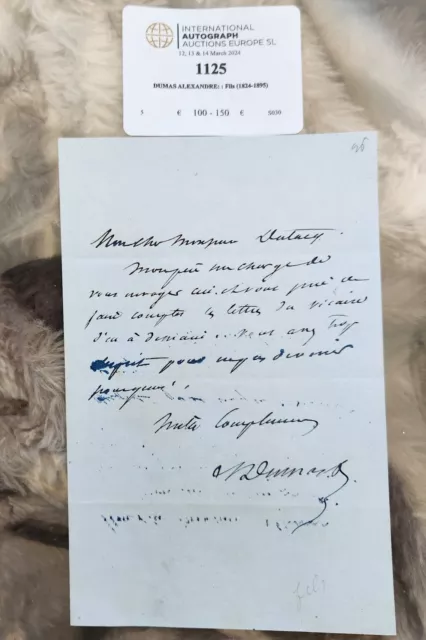 INTERNATIONAL
AUTOGRAPH
AUCTIONS EUROPE SL
12, 13 & 14 March 2024
1125
DUMAS ALEXANDRE: : Fils (1824-1895)
5 € 100 - 150 € 5030
Mon cher Monsieur Dutacq
Mon père me charge de
vous envoyer et vous prie de
faire compter les lettres du
à vous avez trop
esprit pour ne pas deviner
pourquoi!
Mille Compliments
A Dumas
fils